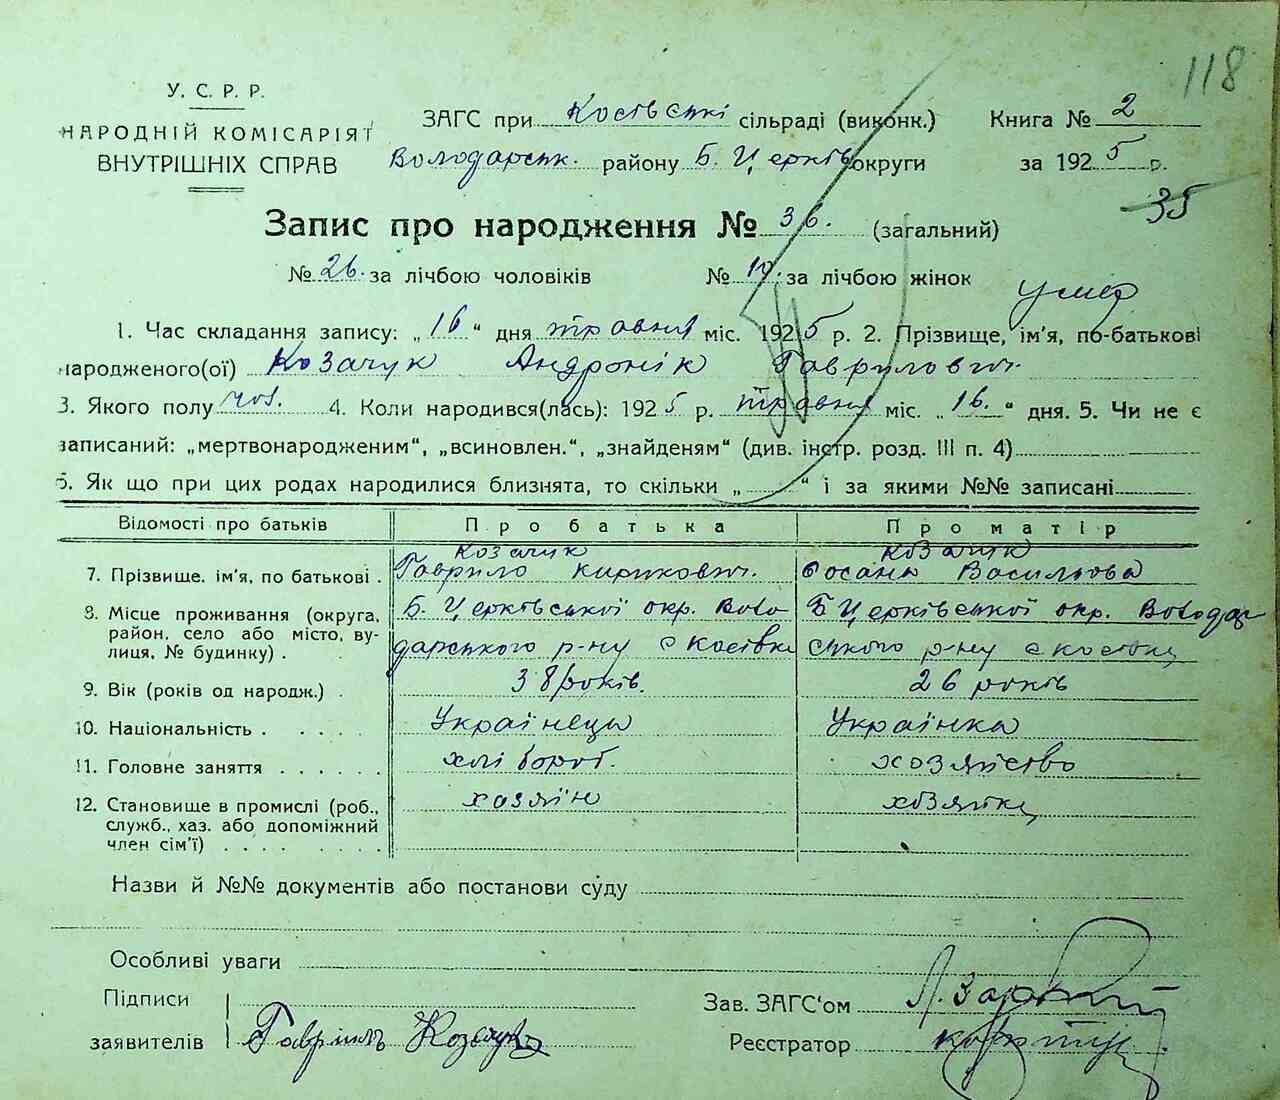 118
У. С. Р. Р.
НАРОДНІЙ КОМІСАРІЯТ
ВНУТРІШНІХ СПРАВ
ЗАГС при Костєвські сільраді (виконк.) Книга № 2
Володарськ. району Б. Церків округи за 1925 р.
35
Запис про народження № 36. (загальний)
№ 26. за лічбою чоловіків № 10. за лічбою жінок
умер
1. Час складання запису: „16“ дня травня міс. 1925 р. 2. Прізвище, ім'я, по-батькові
народженого(ої) Козачук Андронік Гаврилович.
3. Якого полу чол. 4. Коли народився(лась): 1925 р. травня міс. „16.“ дня. 5. Чи не є
записаний: „мертвонародженим“, „всиновлен.“, „знайденям“ (див. інстр. розд. III п. 4)
6. Як що при цих родах народилися близнята, то скільки „ “ і за якими №№ записані
Відомості про батьків Про батька Про матір
Козачук Козачук
7. Прізвище. ім'я, по батькові . Гаврило Кирикович. Оксана Васильова
8. Місце проживання (округа, Б. Церківської окр. Воло Б Церківської окр. Володар
район, село або місто, ву- дарського р-ну с Косівка ського р-ну с Косівка
лиця, № будинку) .
9. Вік (років од народж.) . 38 років. 26 років
10. Національність . . . . . Українець Українка
11. Головне заняття . . . . . . хлібороб. хозяйство
12. Становище в промислі (роб., хазяїн хозяйка
служб., хаз. або допоміжний
член сім'ї) . . . . . . . .
Назви й №№ документів або постанови суду
Особливі уваги
Підписи Зав. ЗАГС'ом
заявителів Гаврило Козачук Реєстратор